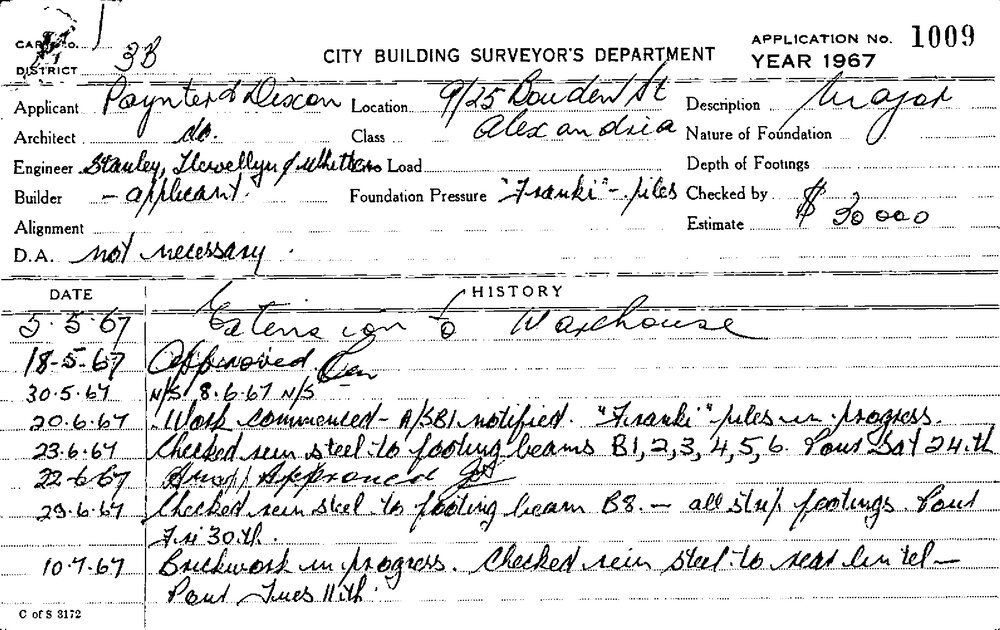 CARD No.
DISTRICT 3B
CITY BUILDING SURVEYOR'S DEPARTMENT
APPLICATION No. 1009
YEAR 1967
Applicant Paynter & Dixon Location 9/25 Bowden St Description Major
Architect do. Class Alexandria Nature of Foundation
Engineer Stanley, Llewellyn & Load Depth of Footings
Builder - applicant. Foundation Pressure "Franki" - piles Checked by
Alignment Estimate $ 30000
D.A. not necessary.
DATE HISTORY
5.5.67 Extension to Warehouse
18-5-67 Approved
30.5.67 N/S 8.6.67 N/S
20.6.67 Work commenced - A/SB1 notified. "Franki" piles in progress.
23.6.67 Checked rein steel to footing beams B1, 2, 3, 4, 5, 6. Pour Sat 24.th
22-6-67 Approved
29.6.67 Checked rein steel to footing beam B8. - all strip footings. Pour
Fri 30th.
10.7.67 Brickwork in progress. Checked rein steel to rear lintel -
Pour Tues 11th.
C of S 3172